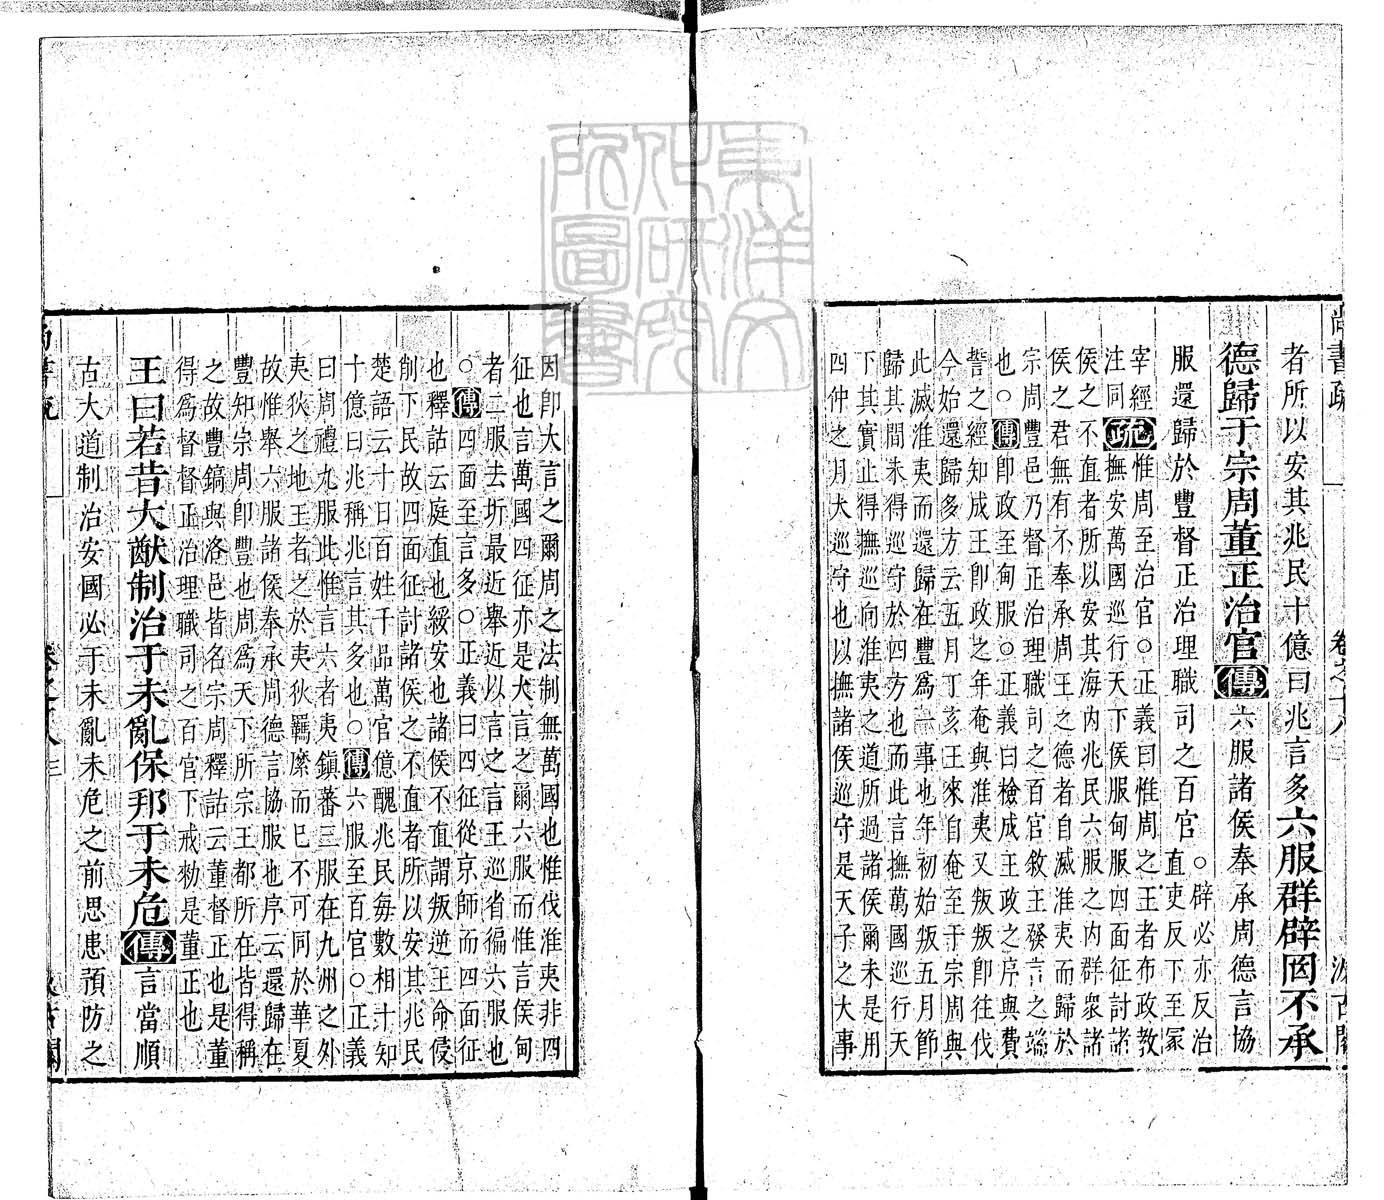 尚書疏 卷之十八 三 汲古閣
者所以安其兆民十億曰兆言多六服群辟罔不承
德歸于宗周董正治官傳六服諸侯奉承周德言協
服還歸於豐督正治理職司之百官○辟必亦反治
直吏反下至冢
宰經
注同疏惟周至治官○正義曰惟周之王者布政教
撫安萬國巡行天下侯服甸服四面征討諸
侯之不直者所以安其海内兆民六服之内群衆諸
侯之君無有不奉承周王之德者自滅淮夷而歸於
宗周豐邑乃督正治理職司之百官敘王發言之端
也○傳即政至甸服○正義曰檢成王政之序與費
誓之經知成王即政之年奄與淮夷又叛叛即往伐
今始還歸多方云五月丁亥王來自奄至于宗周與
此滅淮夷而還歸在豐爲一事也年初始叛五月節
歸其間未得巡守於四方也而此言撫萬國巡行天
下其實止得撫巡向淮夷之道所過諸侯爾未是用
四仲之月大巡守也以撫諸侯巡守是天子之大事
因即大言之爾周之法制無萬國也惟伐淮夷非四
征也言萬國四征亦是大言之爾六服而惟言侯甸
者二服去圻最近舉近以言之言王巡省徧六服也
○傳四面至言多○正義曰四征從京師而四面征
也釋詁云庭直也綏安也諸侯不直謂叛逆王命侵
削下民故四面征討諸侯之不直者所以安其兆民
楚語云十日百姓千品萬官億醜兆民每數相十知
十億曰兆稱兆言其多也○傳六服至百官○正義
曰周禮九服此惟言六者夷鎮蕃三服在九州之外
夷狄之地王者之於夷狄羈縻而已不可同於華夏
故惟舉六服諸侯奉承周德言協服也序云還歸在
豐知宗周即豐也周爲天下所宗王都所在皆得稱
之故豐鎬與洛邑皆名宗周釋詁云董督正也是董
得爲督督正治理職司之百官下戒勑是董正也
王曰若昔大猷制治于未亂保邦于未危傳言當順
古大道制治安國必于未亂未危之前思患預防之
尚書疏 卷之十八 三 汲古閣